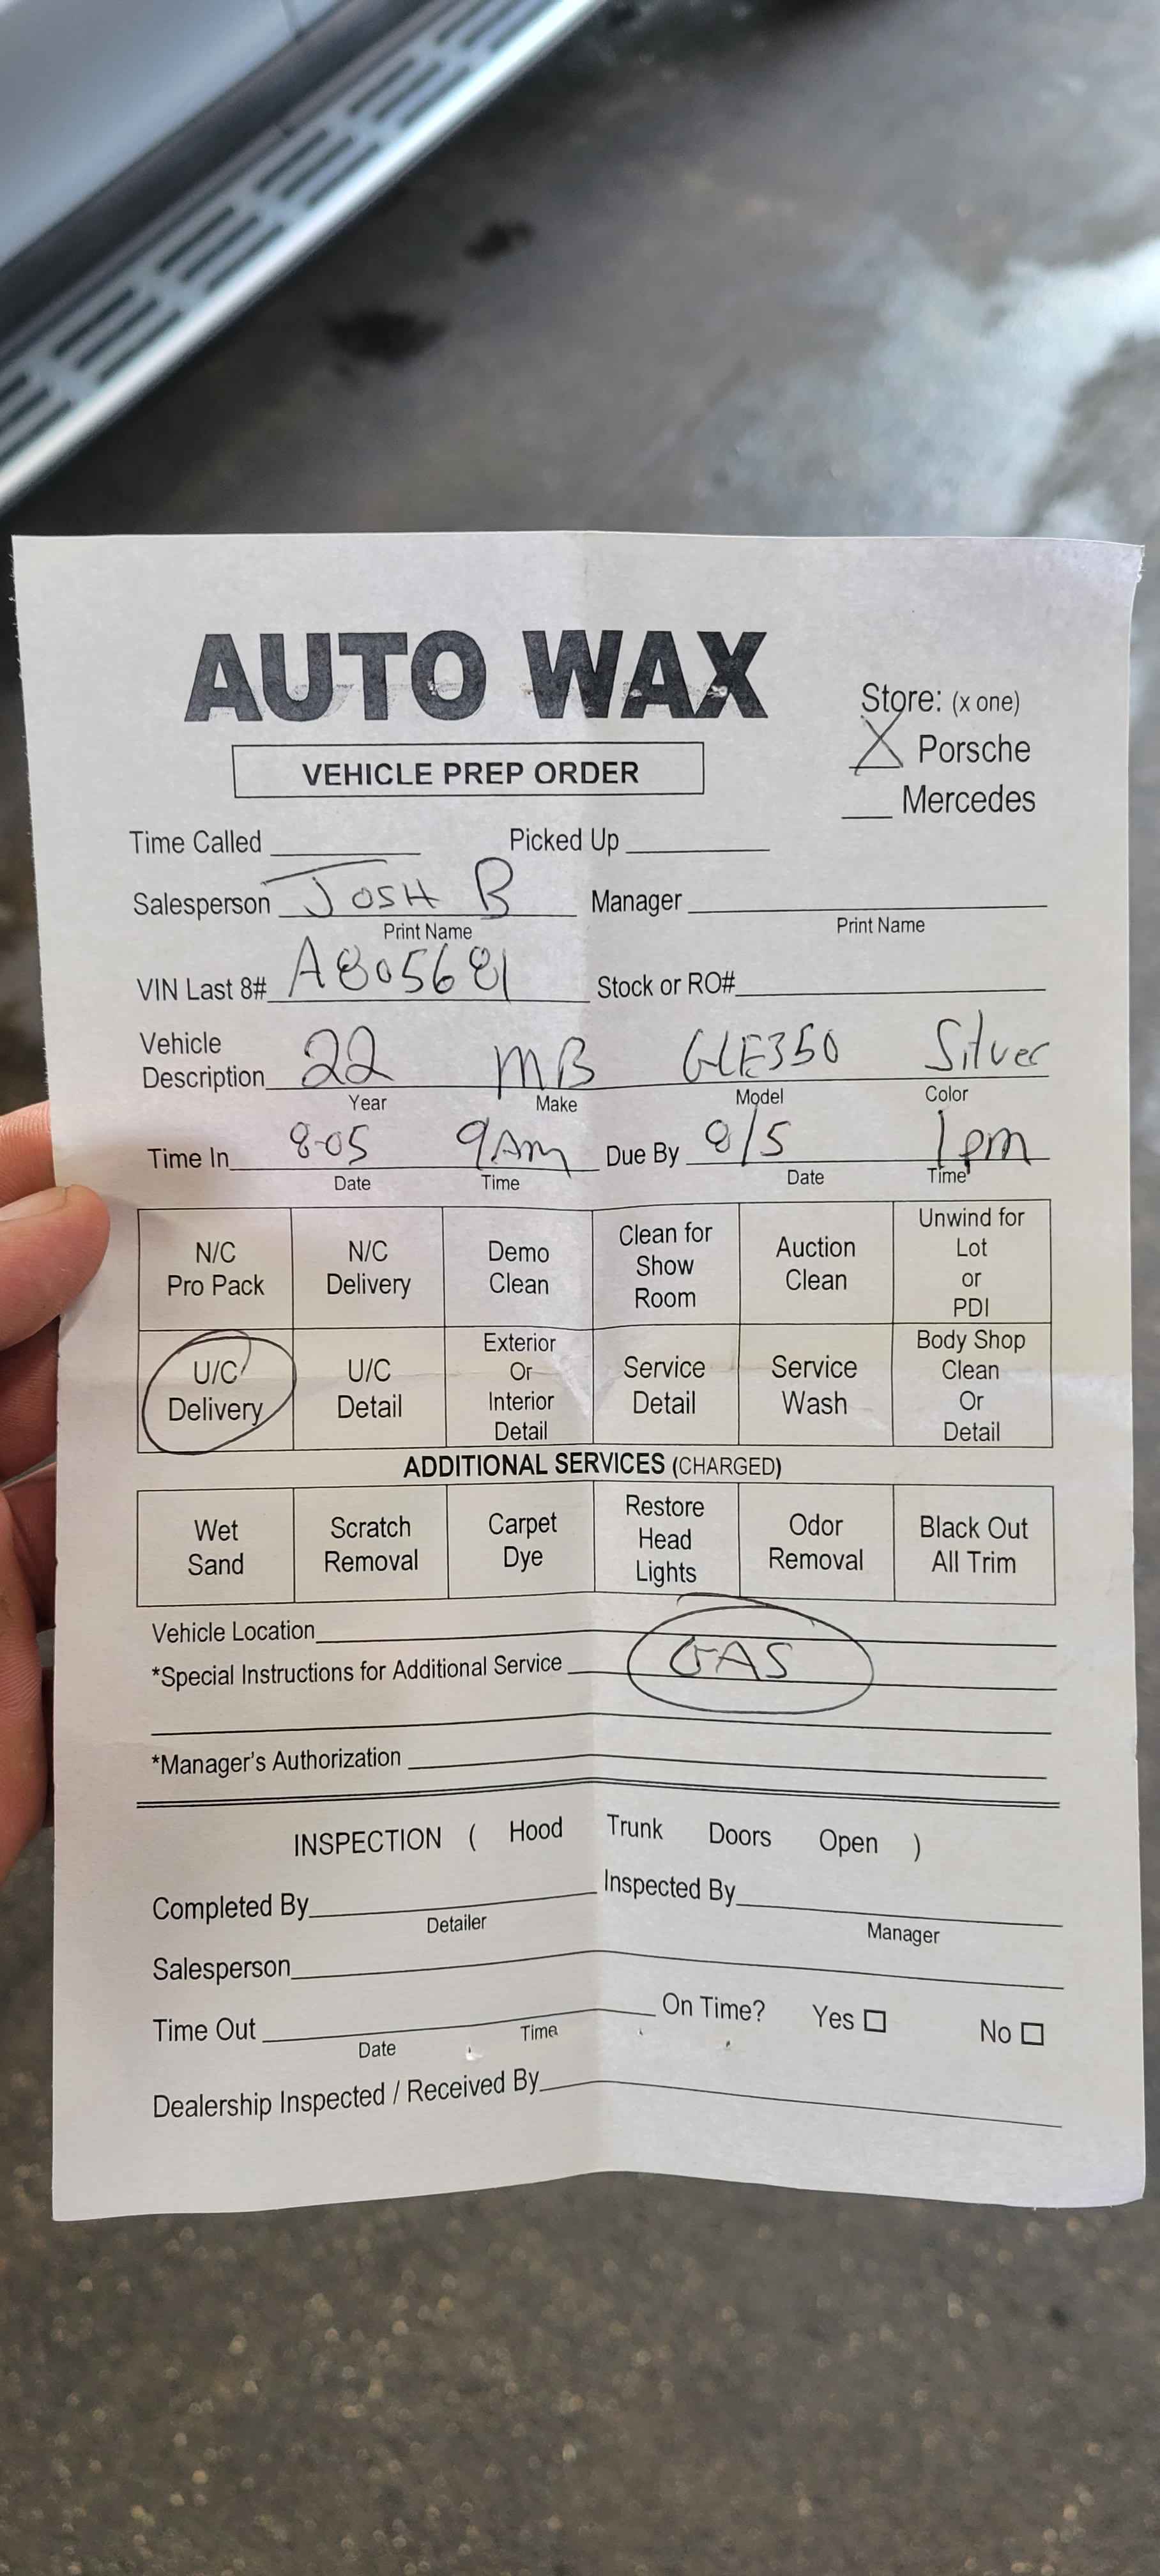 AUTO WAX
Store: (x one)
VEHICLE PREP ORDER
X Porsche
__ Mercedes
Time Called ________ Picked Up ________
Salesperson JOSH B Manager ________
Print Name Print Name
VIN Last 8# A805681 Stock or RO# ________
Vehicle
Description 22 MB GLE350 Silver
Year Make Model Color
Time In 8-05 9AM Due By 8/5 1pm
Date Time Date Time
N/C Pro Pack
N/C Delivery
Demo Clean
Clean for Show Room
Auction Clean
Unwind for Lot or PDI
U/C Delivery
U/C Detail
Exterior Or Interior Detail
Service Detail
Service Wash
Body Shop Clean Or Detail
ADDITIONAL SERVICES (CHARGED)
Wet Sand
Scratch Removal
Carpet Dye
Restore Head Lights
Odor Removal
Black Out All Trim
Vehicle Location ________
*Special Instructions for Additional Service GAS
*Manager's Authorization ________
INSPECTION ( Hood Trunk Doors Open )
Completed By ________ Inspected By ________
Detailer Manager
Salesperson ________
Time Out ________ On Time? Yes ☐ No ☐
Date Time
Dealership Inspected / Received By ________